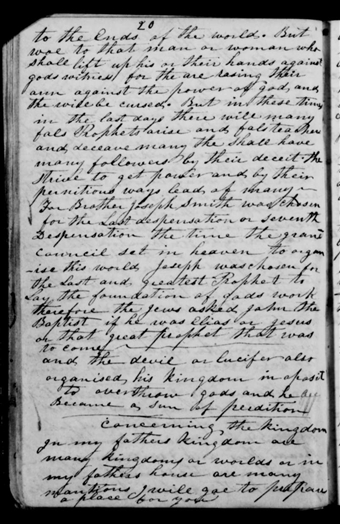 20
to the Ends of the world. But
woe to that man or woman who
shall lift up his or their hands against
gods witness for the are rasing their
arm against the power of god, and
the will be cursed. But in these times
in the last days there will many
fals Prophets arise and fals teachers
and deceave many the shall have
many followers by their deceit the
Strive to get power and by their
pernitious ways lead of many —
For Brother Joseph Smith was chosen
for the Last despensation or seventh
Despensation the time the grand
Council set in heaven to organ
-ise this world Joseph was chosen for
the last and greatest Prophet to
Lay the foundation of gods work
therefore the Jews asked John the
Baptist if he was Elias or Jesus
or that great prophet that was
to come,
and the devil or Lucifer also
organised his kingdom in oposit
to overthrow gods and he
Became a Sun of perdition
Concerning, the kingdom
In my fathers kingdom are
many kingdoms or worlds or in
my fathers house are many
I will goe to prepare
a place for you